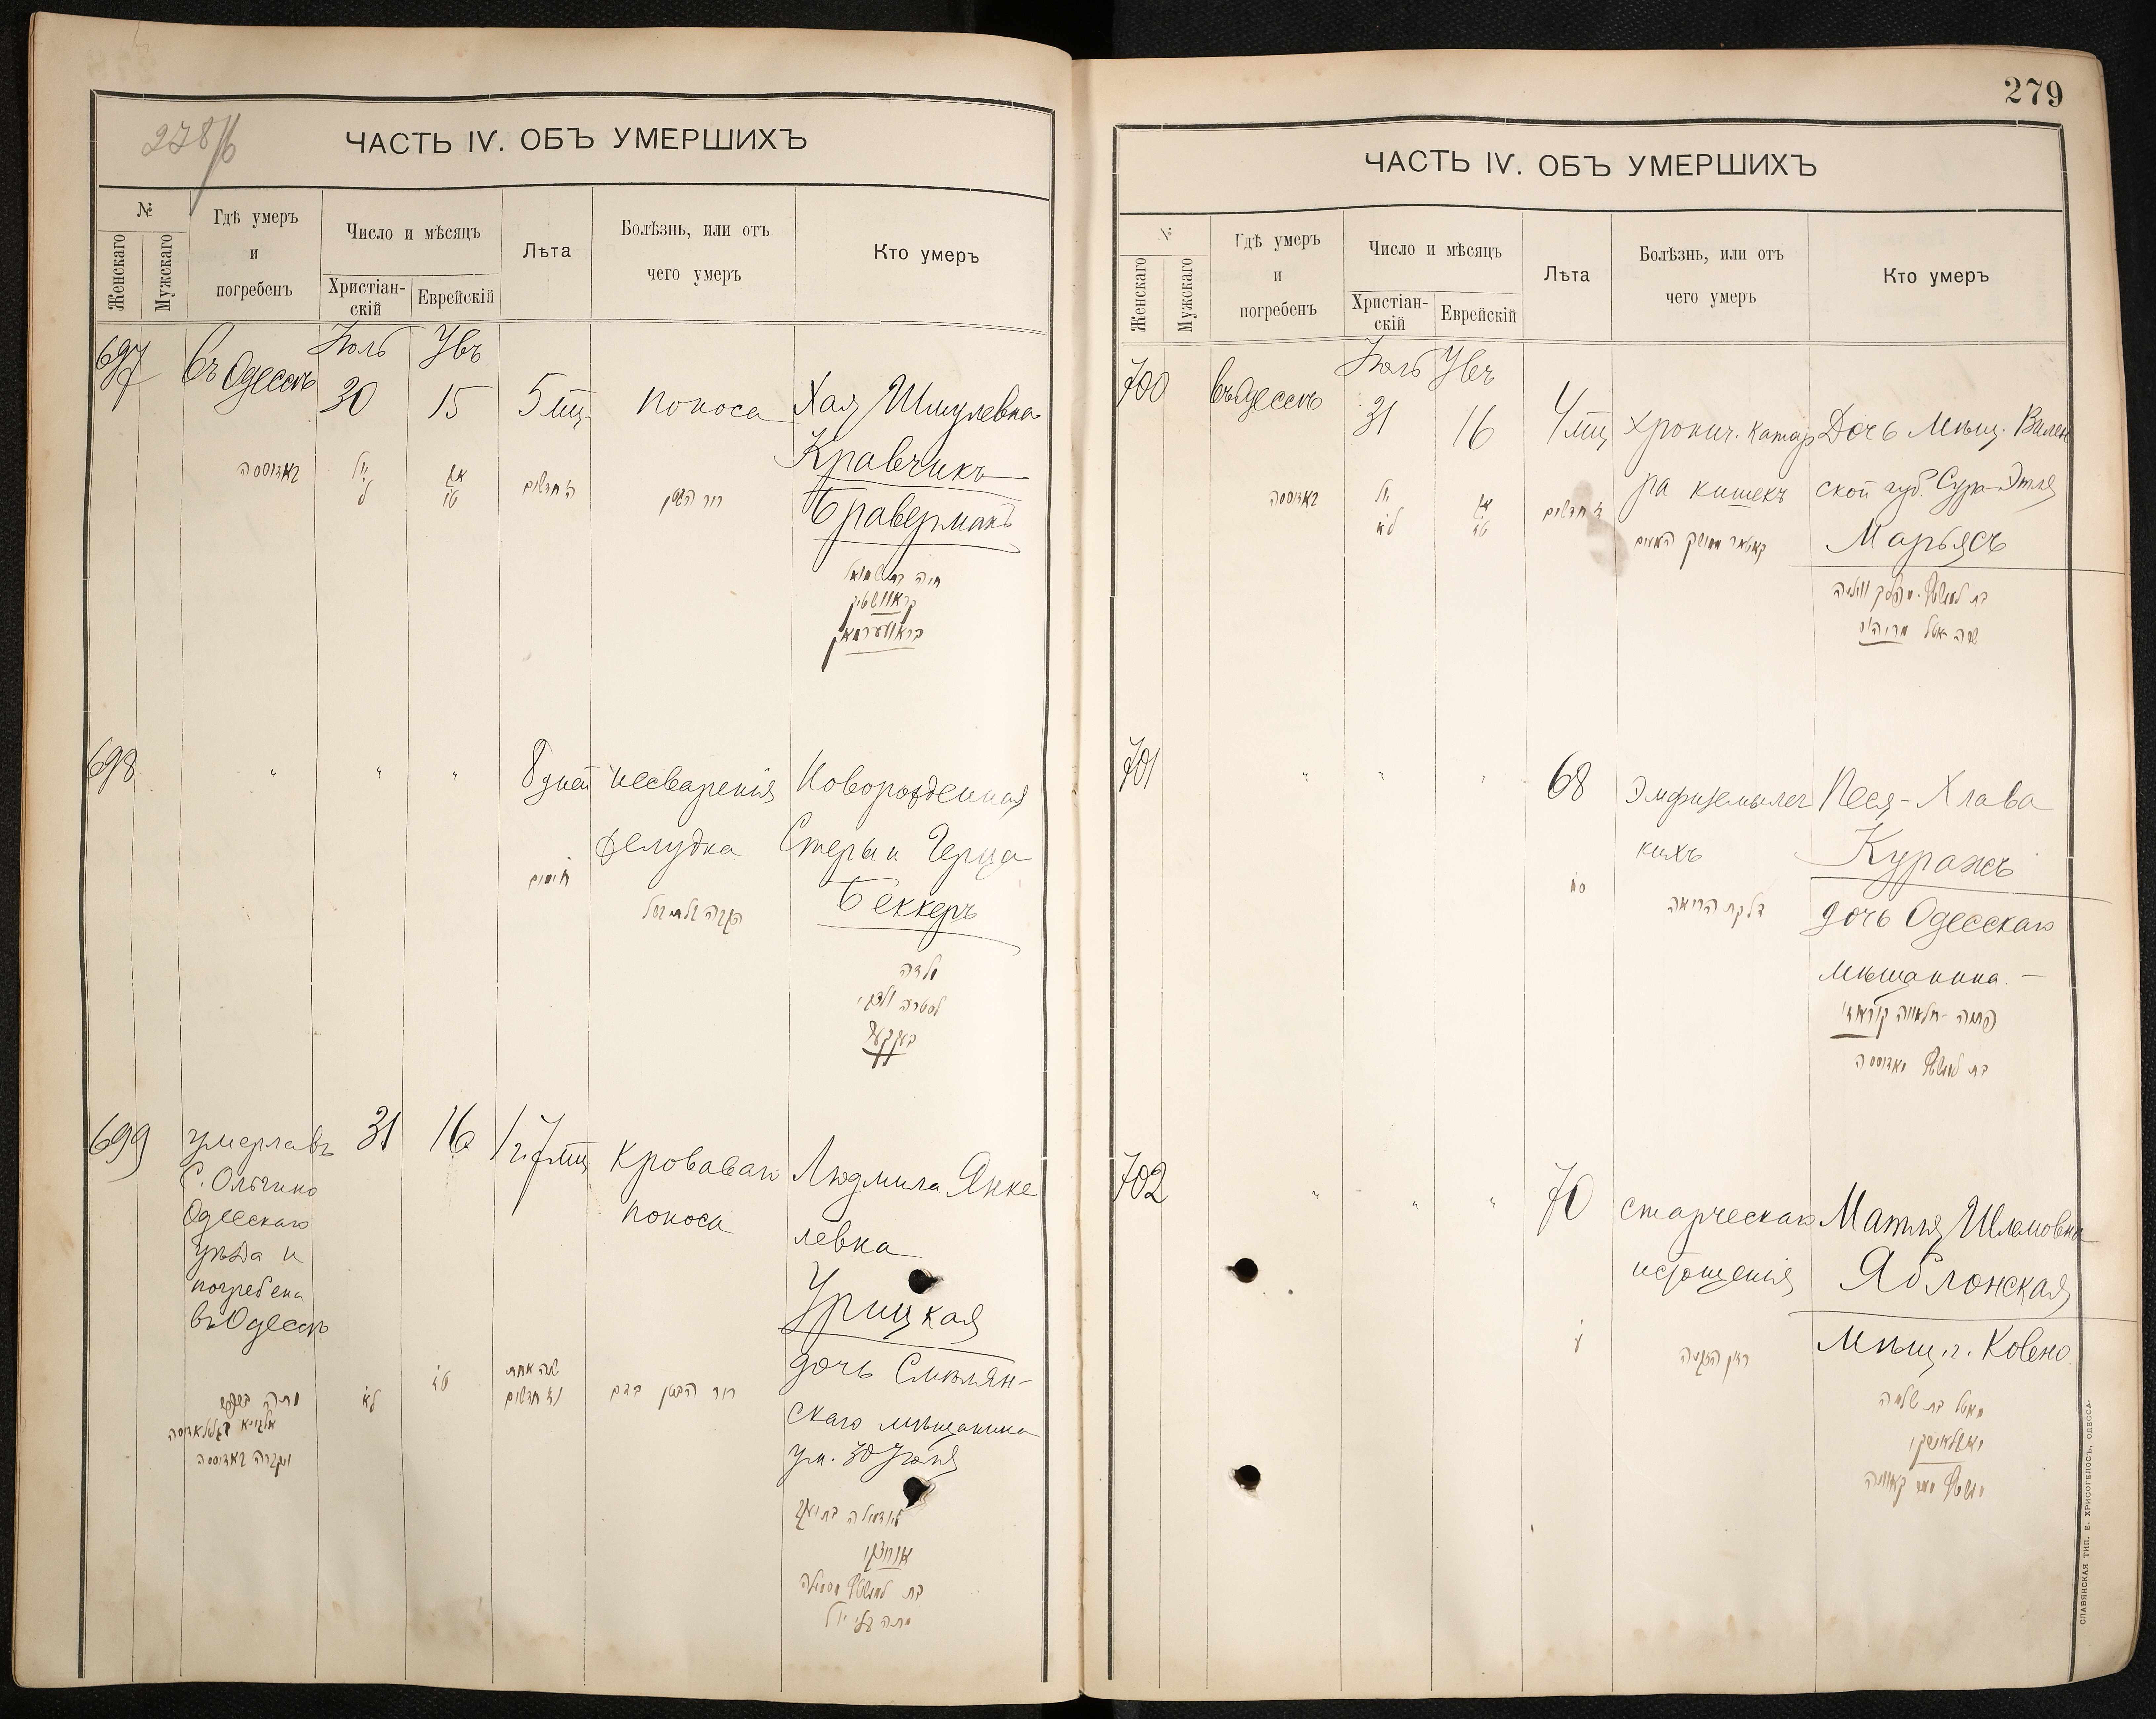 278/б
ЧАСТЬ IV. ОБЪ УМЕРШИХЪ
№
Женскаго
Мужскаго
Гдѣ умеръ
и
погребенъ
Число и мѣсяцъ
Христіан-
скій
Еврейскій
Лѣта
Болѣзнь, или отъ
чего умеръ
Кто умеръ
697
въ Одессѣ
Іюль
30
Увъ
15
5 мѣц
поноса
Хая Шмулевна
Кравчикъ
Браверманъ
באדוססה
יול
ל
אב
טו
ה' חדשים
חיה בת שמואל
698
"
"
"
8 дней
несваренія
желудка
Новорожденная
Стеры и Герца
Беккеръ
ח' ימים
ילדה
699
умерла въ
С. Ольгино
Одесскаго
уѣзда и
погребена
въ Одессѣ
31
16
1 г. 7 мц
Кроваваго
поноса
Людмила Янке
левна
Урицкая
дочь Смѣлян-
скаго мѣщанина
ум. 30 Іюля
לא
טז
שנה אחת
וז' חדשים
279
ЧАСТЬ IV. ОБЪ УМЕРШИХЪ
№
Женскаго
Мужскаго
Гдѣ умеръ
и
погребенъ
Число и мѣсяцъ
Христіан-
скій
Еврейскій
Лѣта
Болѣзнь, или отъ
чего умеръ
Кто умеръ
700
въ Одессѣ
Іюль
31
Увъ
16
4 мц
хронич. катар
ра кишекъ
Дочь Мѣщ. Вилен
ской губ. Сура-Этля
Марьясъ
באדוססה
יול
לא
אב
טז
ד' חדשים
701
"
"
"
68
Эмфиземы лег
кихъ
Песя-Хлава
Куражъ
дочь Одесскаго
мѣщанина. -
סח
דלקת הריאה
702
"
"
"
70
старческаго
истощенія
Матля Шлемовна
Яблонская
Мѣщ. г. Ковно
ע
מאטל בת שלמה
СЛАВЯНСКАЯ ТИП. Е. ХРИСОГЕЛОСЪ, ОДЕССА.